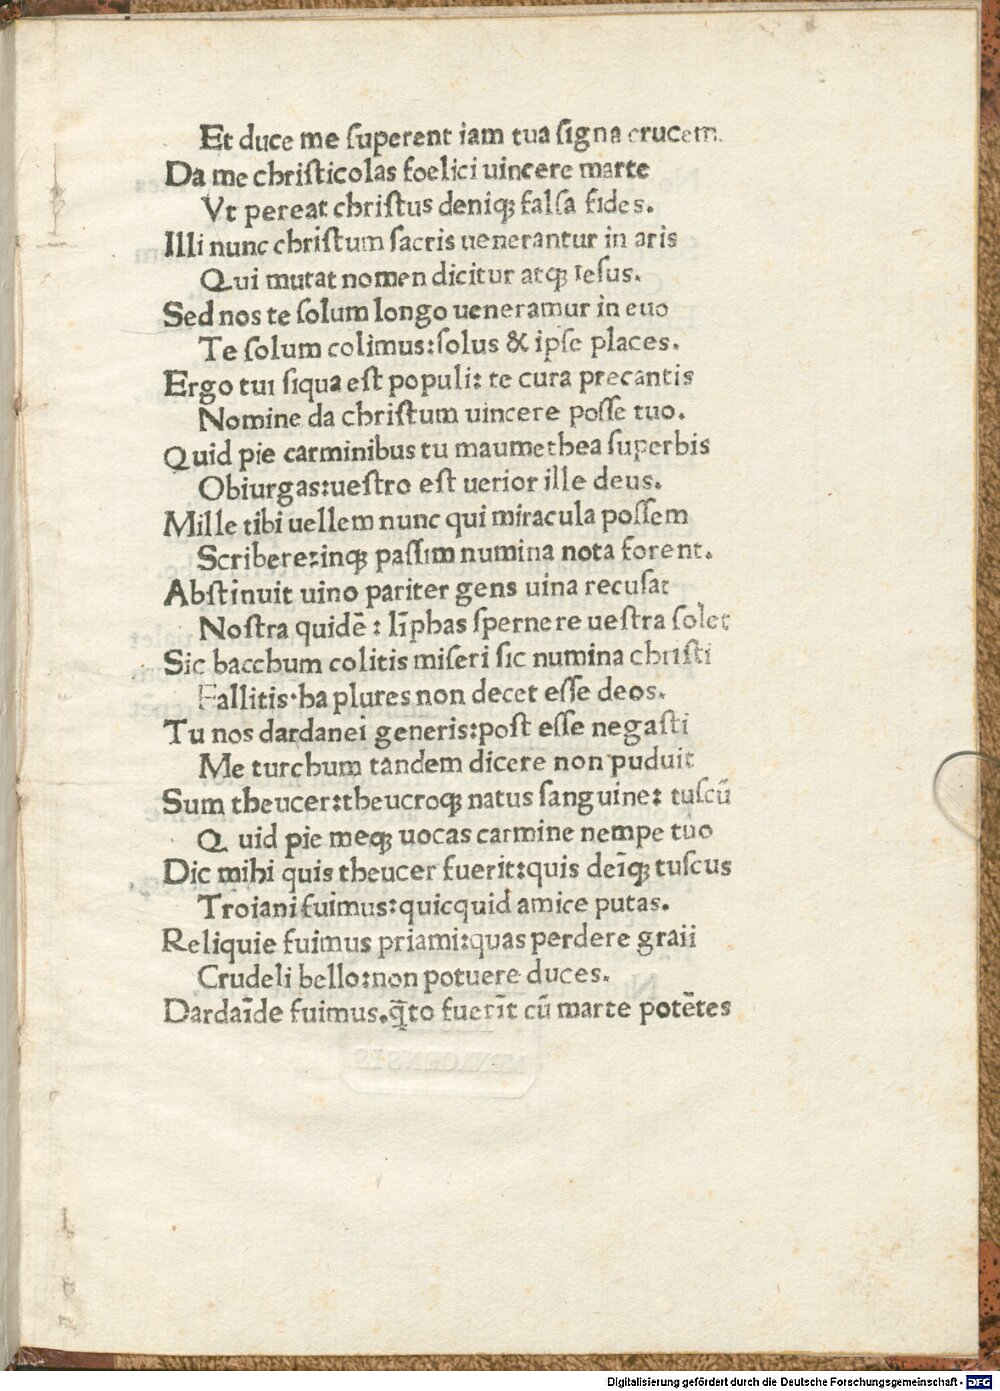 Et duce me ſuperent iam tua ſigna crucem.
Da me chriſticolas foelici uincere marte
Vt pereat chriſtus deniqꝫ falſa fides.
Illi nunc chriſtum ſacris uenerantur in aris
Qui mutat nomen dicitur atqꝫ Ieſus.
Sed nos te ſolum longo ueneramur in euo
Te ſolum colimus:ſolus & ipſe places.
Ergo tui ſiqua eſt populi: te cura precantis
Nomine da chriſtum uincere poſſe tuo.
Quid pie carminibus tu maumethea ſuperbis
Obiurgas:ueſtro eſt uerior ille deus.
Mille tibi uellem nunc qui miracula poſſem
Scribere:inqꝫ paſſim numina nota forent.
Abſtinuit uino pariter gens uina recuſat
Noſtra quidē: līphas ſpernere ueſtra ſolet
Sic bacchum colitis miſeri ſic numina chriſti
Fallitis·ha plures non decet eſſe deos.
Tu nos dardanei generis:poſt eſſe negaſti
Me turchum tandem dicere non puduit
Sum theucer:theucroqꝫ natus ſanguine: tuſcū
Quid pie meqꝫ uocas carmine nempe tuo
Dic mihi quis theucer fuerit:quis deīqꝫ tuſcus
Troiani fuimus:quicquid amice putas.
Reliquie fuimus priami:quas perdere graii
Crudeli bello:non potuere duces.
Dardaīde fuimus.q̄to fuerīt cū marte potētes
Digitalisierung gefördert durch die Deutsche Forschungsgemeinschaft - DFG